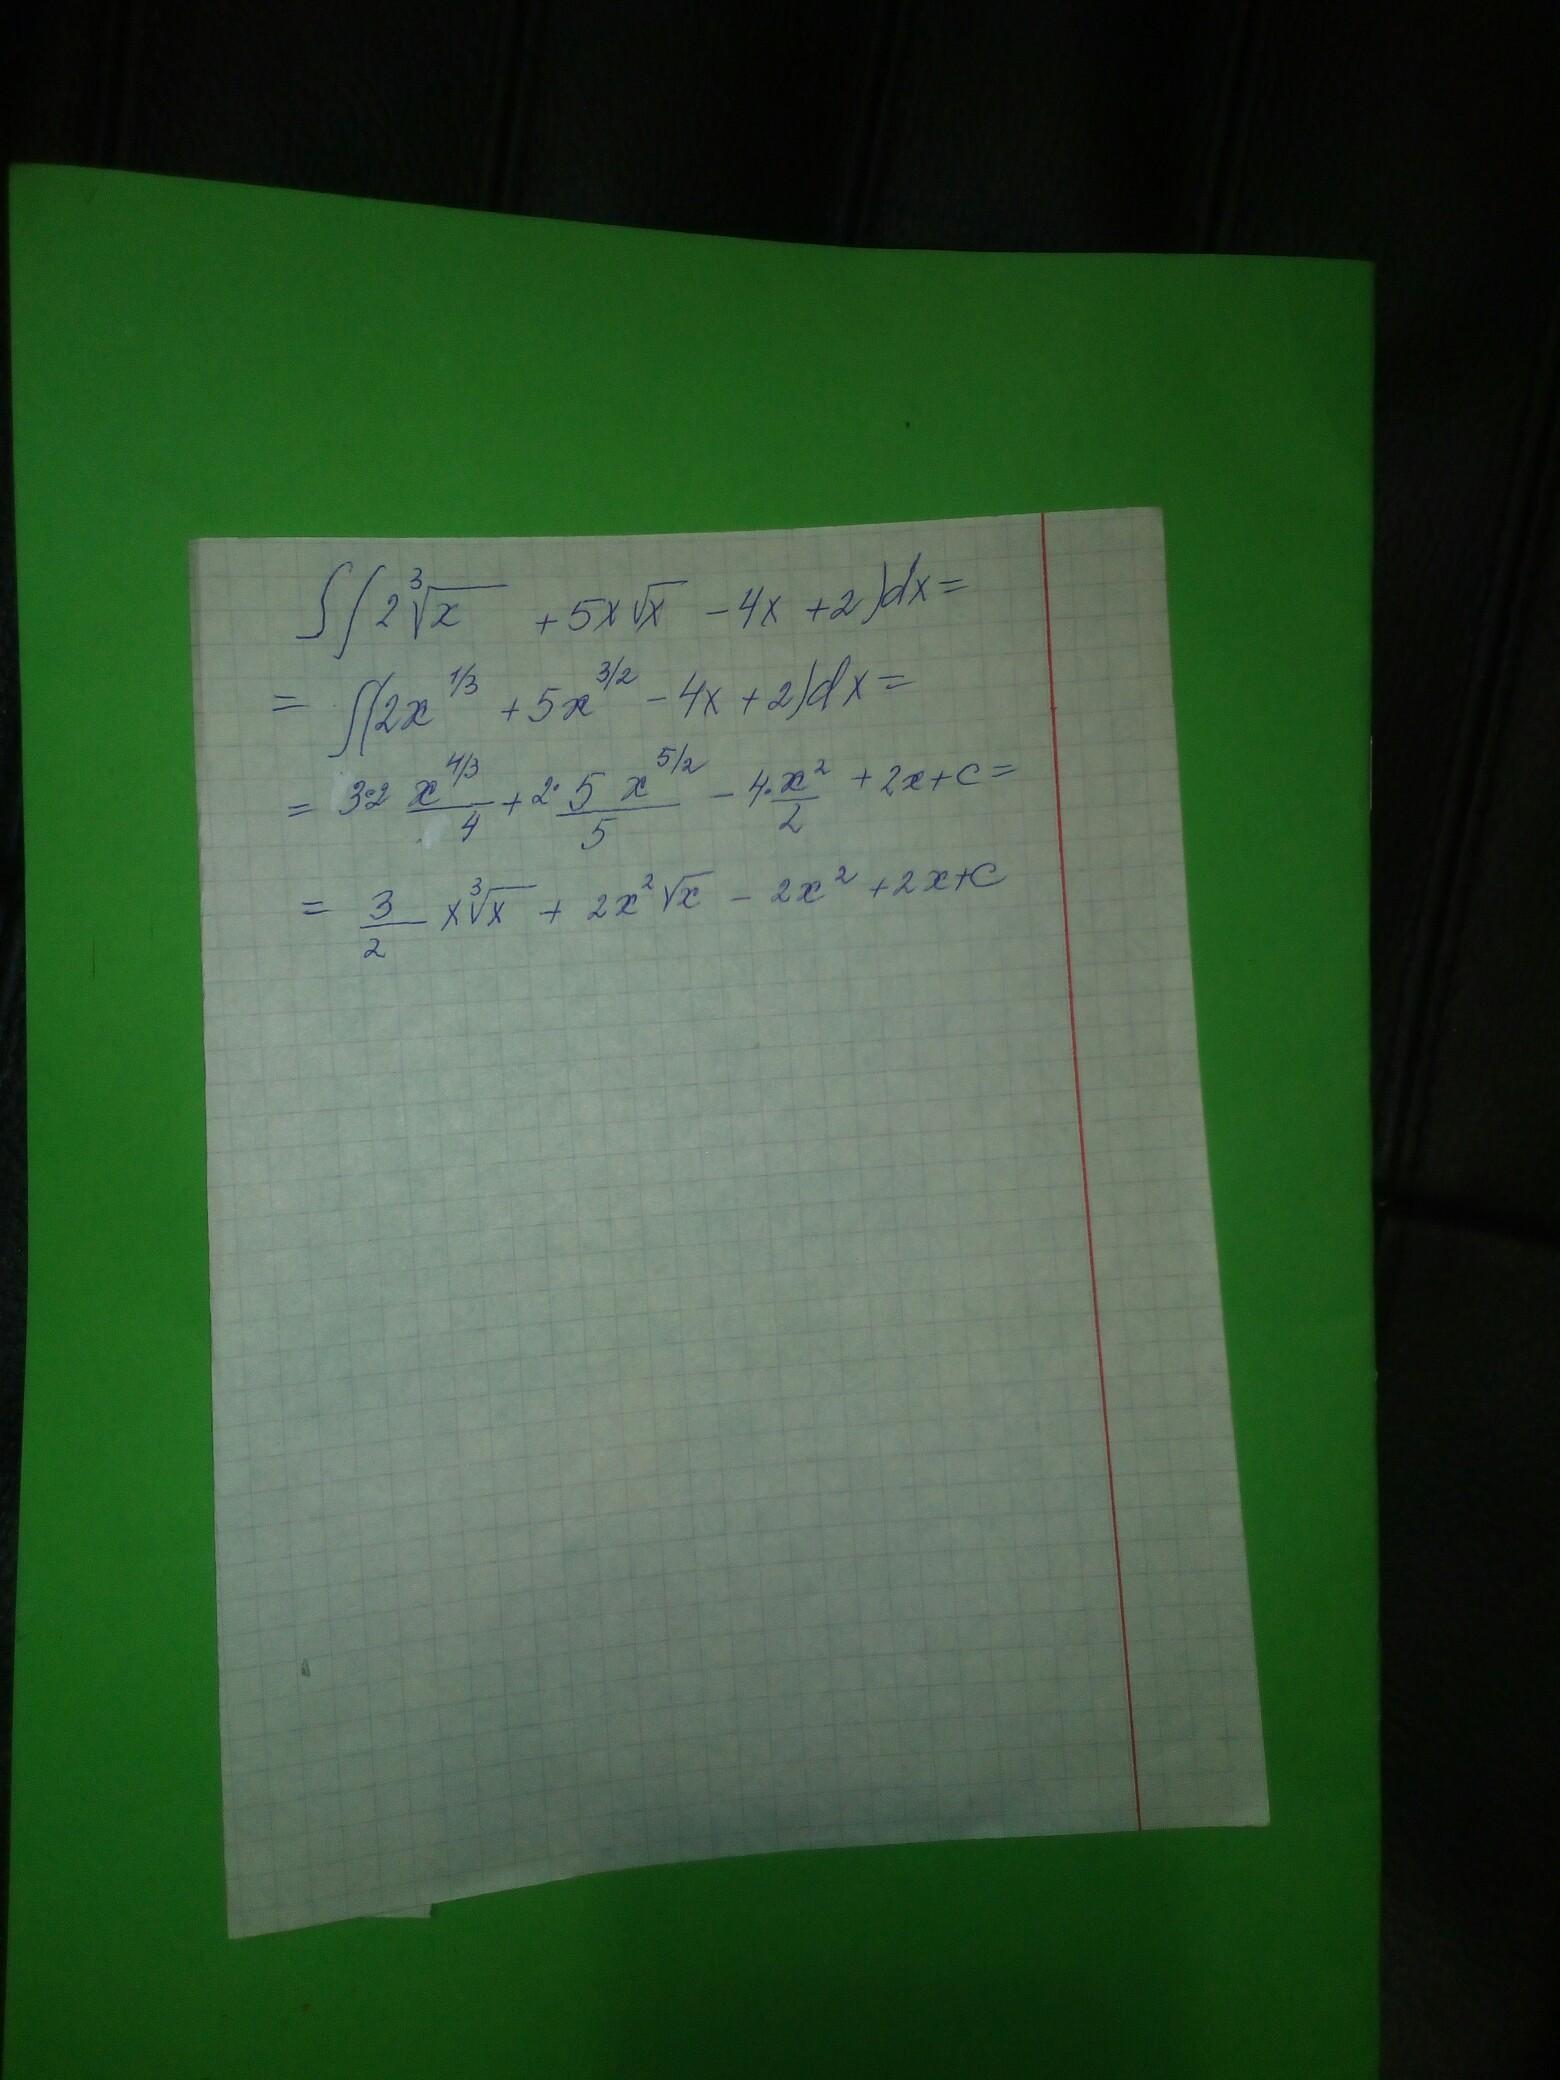 ∫(2∛x + 5x√x − 4x + 2)dx =
= ∫(2x^{1/3} + 5x^{3/2} − 4x + 2)dx =
= 3·2 x^{4/3}/4 + 2·5x^{5/2}/5 − 4·x²/2 + 2x + c =
= 3/2 x∛x + 2x²√x − 2x² + 2x + c